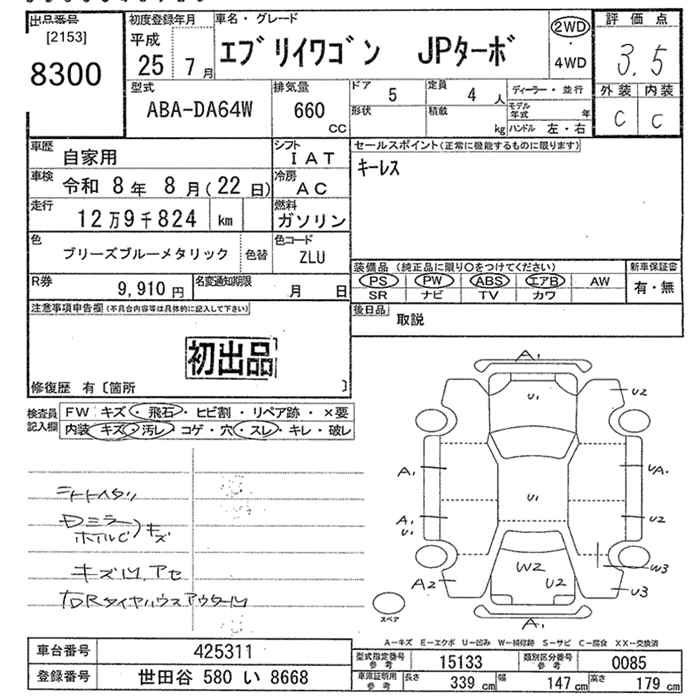 出品番号
[2153]
8300
初度登録年月
平成
25 7月
車名・グレード
エブリイワゴン JPターボ
2WD
・
4WD
評価点
3.5
外装 内装
C C
型式
ABA-DA64W
排気量
660
CC
ドア 5
定員 4人
形状
積載 kg
ディーラー・並行
モデル年式 年
ハンドル 左・右
車歴 自家用
シフト IAT
車検 令和 8年 8月(22日)
冷房 AC
走行 12万9千824 km
燃料 ガソリン
色 ブリーズブルーメタリック 色替
色コード ZLU
R券 9,910円
名変通知期限 月 日
セールスポイント(正常に機能するものに限ります)
キーレス
装備品(純正品に限り○をつけてください)
PS PW ABS エアB AW
SR ナビ TV カワ
新車保証書
有・無
後日品 取説
注意事項申告欄(不具合内容等は具体的に記入して下さい)
初出品
修復歴 有〔箇所 〕
検査員
記入欄
FW キズ・飛石・ヒビ割・リペア跡・×要
内装 キズ・汚レ・コゲ・穴・スレ・キレ・破レ
シートヘタリ
Dミラー
ホイルC
キズ
キズ凹、アセ
A1
U1
U2
A1
UA1
A1
U1
U1
U2
W2
U2
W3
A2
U3
A1
スペア
A－キズ E－エクボ U－凹み W－補修跡 S－サビ C－腐食 XX－交換済
車台番号 425311
登録番号 世田谷 580 い 8668
型式指定番号
参考
15133
類別区分番号
参考
0085
車庫証明用
参考
長さ 339cm 幅 147cm 高さ 179cm